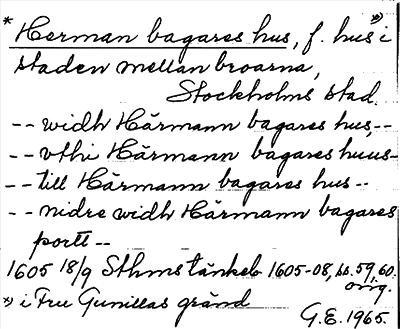 * Herman bagares hus, f. hus *) i
staden mellan broarna,
Stockholms stad.
-- widh Härmann bagares hus, --
-- vthi Härmann bagares huus --
-- till Härmann bagares hus --
-- nidre widh Härmann bagares
portt --
1605 18/9 Sthms tänkeb 1605-08, ss. 59, 60.
orig.
*) i Fru Gunillas gränd
G.E. 1965.